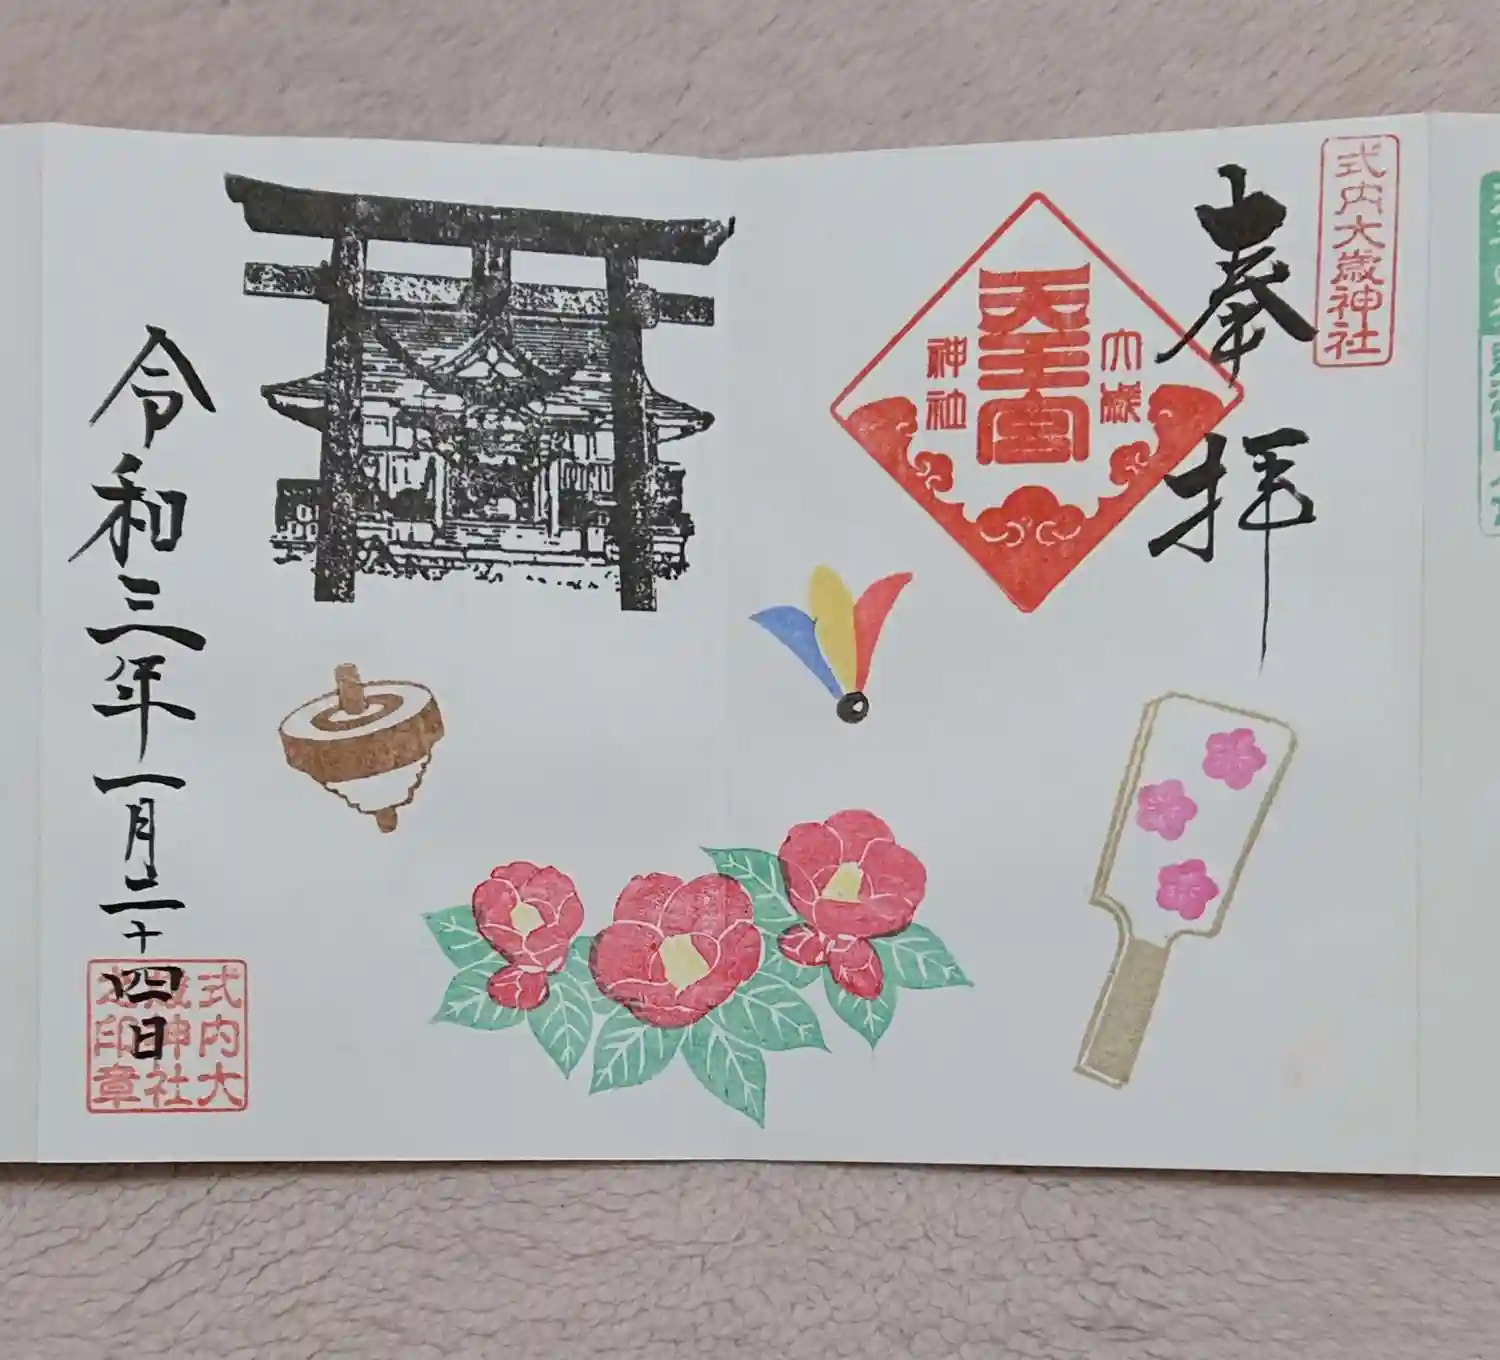 式内大歳神社
奉拝
大歳
天王宮
神社
令和三年一月二十四日
式内大
歳神社
之印章